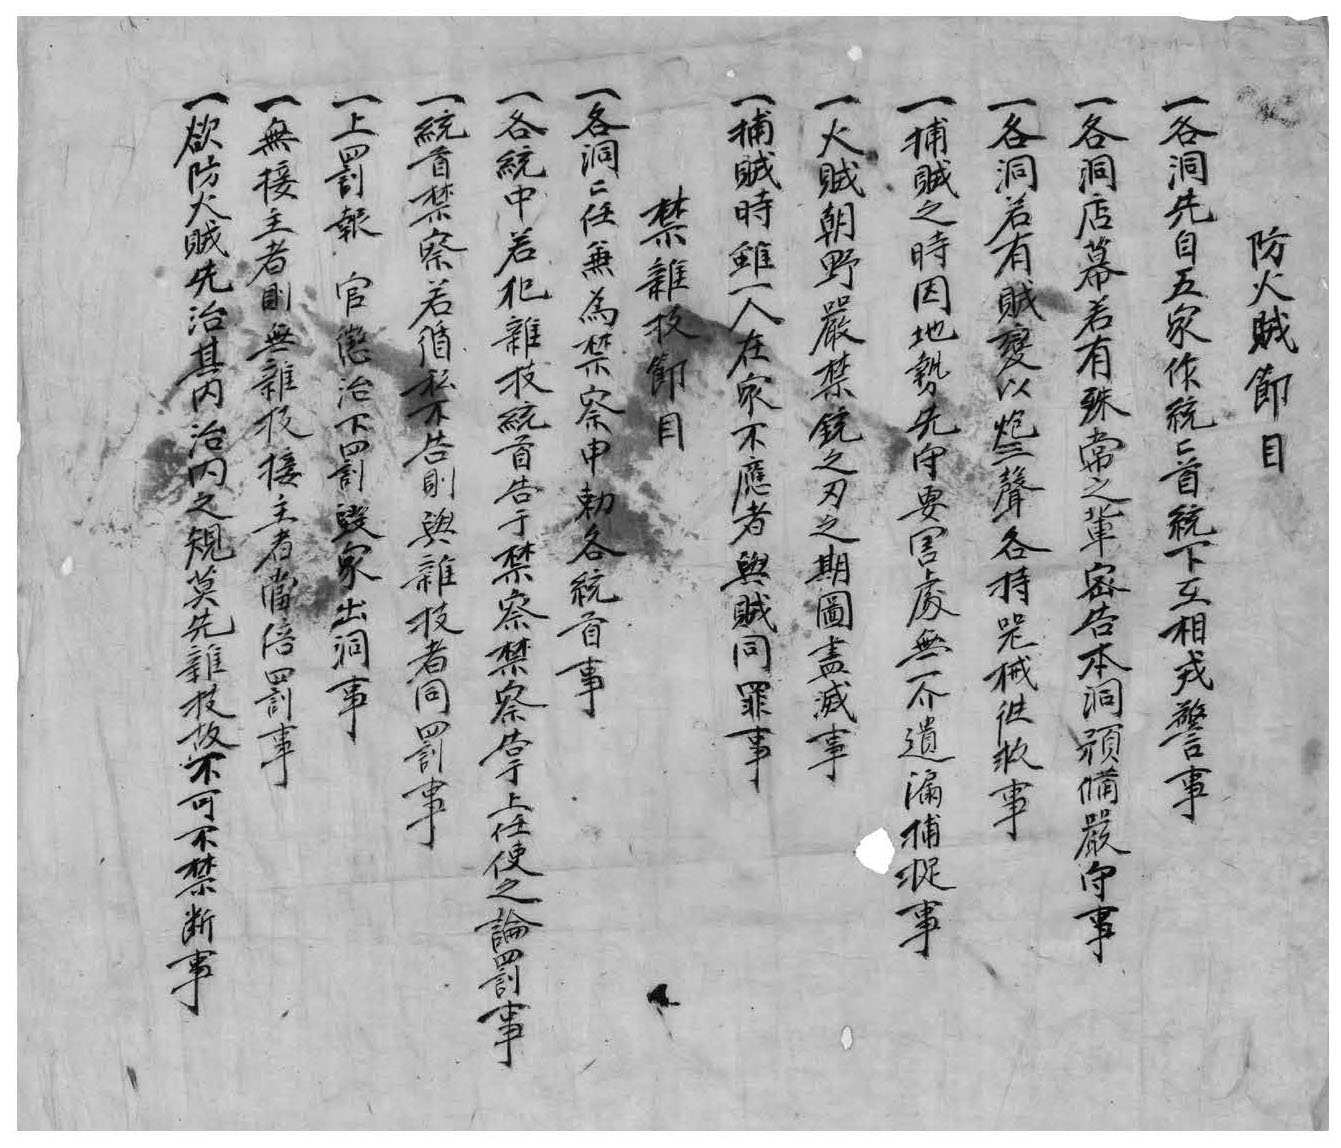 防火賊節目
一各洞先自五家作統〻首統下互相戎警事
一各洞店幕若有殊常之輩密告本洞預備嚴守事
一各洞若有賊變以炮三聲各持器械徃救事
一捕賊之時因地勢先守要害處無一介遺漏捕捉事
一火賊朝野嚴禁銃之刃之期圖盡滅事
一捕賊時雖一人在家不應者與賊同罪事
禁雜技節目
一各洞〻任兼為禁察申勅各統首事
一各統中若犯雜技統首告于禁察禁察告于上任使之論罰事
一統首禁察若循私不告則與雜技者同罰事
一上罰報 官懲治下罰毀家出洞事
一無接主者則無雜技接主者當倍罰事
一欲防火賊先治其內治內之規莫先雜技故不可不禁断事